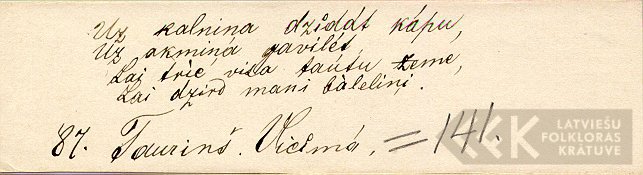 Uz kalnina dzidát kápu,
Uz akmina gavilét,
Lai trìc visa tautu zeme,
Lai dzird mani bàlelini.
87. Taurinš. Vicemá. = 141.
LATVIEŠU
FOLKLORAS
KRĀTUVE